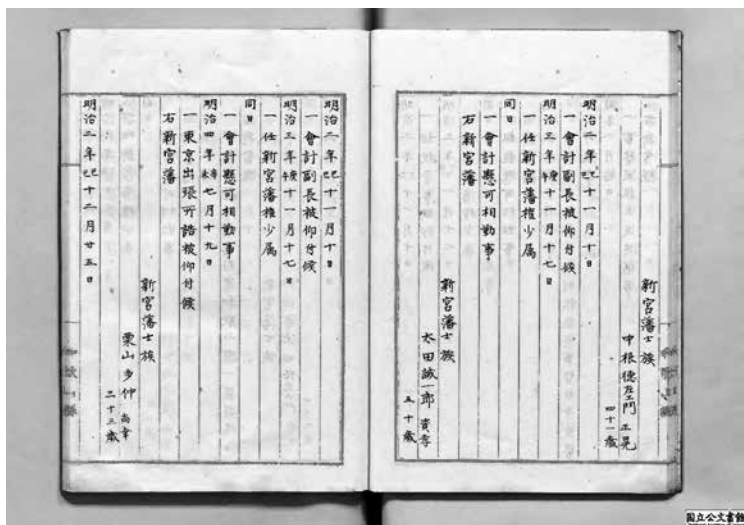 新宮藩士族
中根德左エ門 正晃
四十一歳
明治二年己巳十一月十日
一會計副長被仰付候
明治三年庚午十一月十七日
一任新宮藩権少属
同日
一會計懸可相勤事
右新宮藩
新宮藩士族
太田誠一郎 資孝
五十歳
明治二年己巳十一月十日
一會計副長被仰付候
明治三年庚午十一月十七日
一任新宮藩権少属
同日
一會計懸可相勤事
明治四年辛未七月十九日
一東京出張所詰被仰付候
右新宮藩
新宮藩士族
栗山多仲 尚幸
二十三歳
明治二年己巳十二月廿五日
国立公文書館